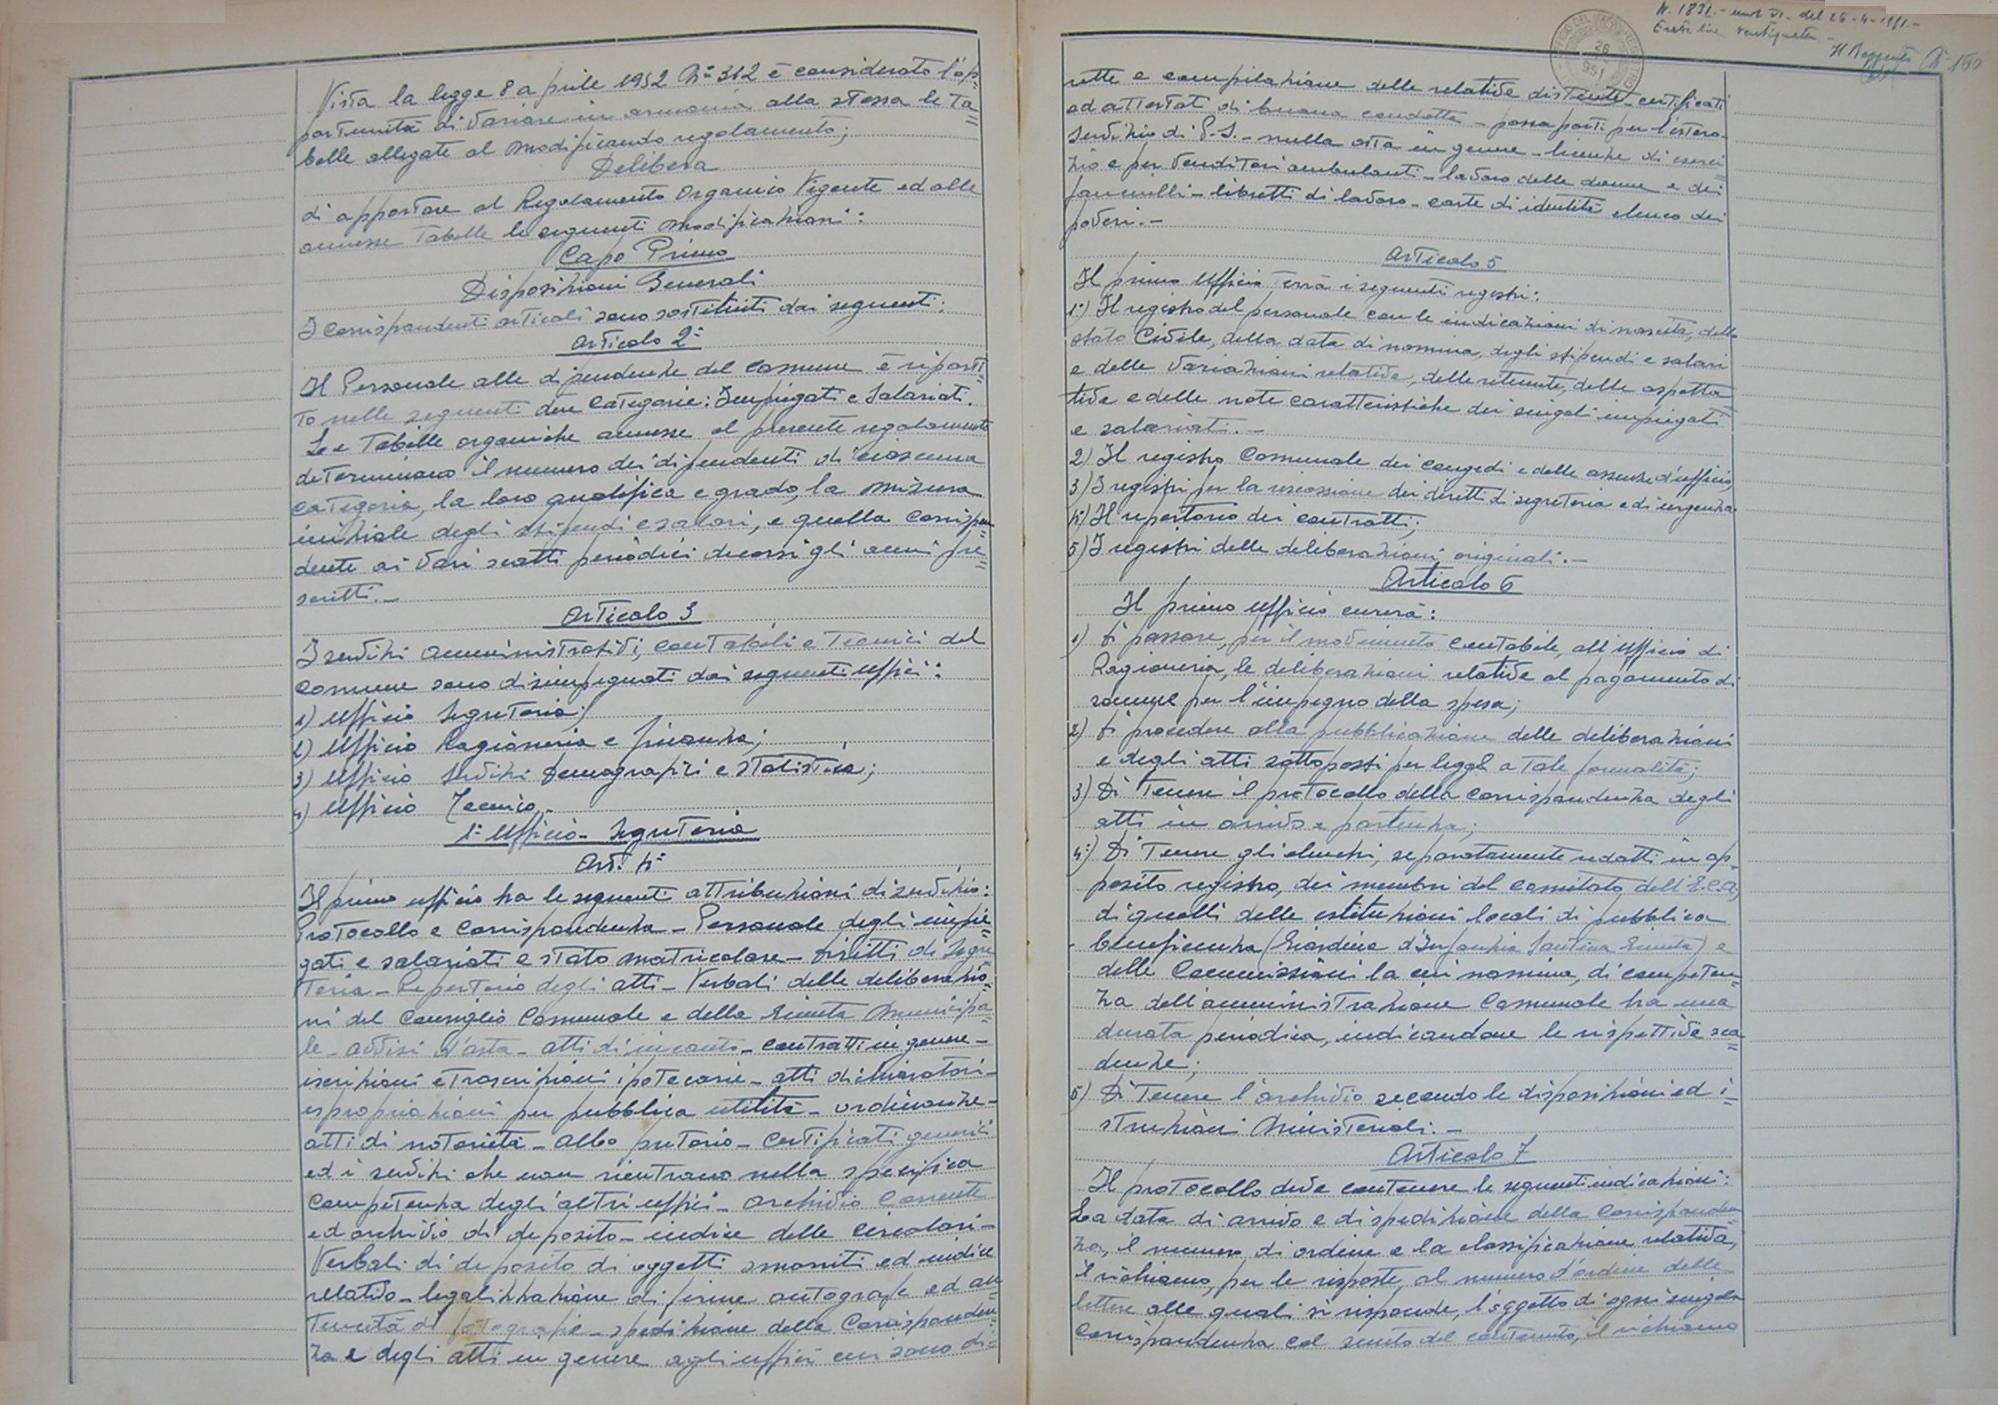 Vista la legge 8 aprile 1952 N° 312 è considerato l'op=
portunità di variare in armonia alla stessa le ta=
belle allegate al modificando regolamento;
Delibera
di apportare al Regolamento Organico Vigente ed alle
annesse Tabelle le seguenti modificazioni:
Capo Primo
Disposizioni Generali
I corrispondenti articoli sono sostituiti dai seguenti:
Articolo 2°
Il Personale alle dipendenze del Comune è riparti=
to nelle seguenti due Categorie: Impiegati e Salariati.
Le Tabelle organiche annesse al presente regolamento
determinano il numero dei dipendenti di ciascuna
categoria, la loro qualifica e grado, la misura
iniziale degli stipendi e salari, e quella corrispon=
dente ai vari scatti periodici decorsi gli anni pre=
scritti.-
Articolo 3
I servizi amministrativi, contabili e tecnici del
Comune sono disimpegnati dai seguenti uffici:
1) Ufficio Segreteria;
2) Ufficio Ragioneria e finanza;
3) Ufficio Servizi Demografici e statistica;
4) Ufficio Tecnico.-
1° Ufficio - Segreteria
Art. 4°
Il primo ufficio ha le seguenti attribuzioni di servizio:
Protocollo e Corrispondenza - Personale degli impie=
gati e salariati e stato matricolare - Diritti di Segre=
teria - Repertorio degli atti - Verbali delle deliberazio=
ni del Consiglio Comunale e della Giunta Municipa=
le - avvisi d'asta - atti di incanto - contratti in genere -
iscrizioni e trascrizioni ipotecarie - atti dichiaratori -
espropriazioni per pubblica utilità - ordinanze -
atti di notorietà - albo pretorio - Certificati generici
ed i servizi che non rientrano nella specifica
competenza degli altri uffici - archivio Corrente
ed archivio di deposito - indice delle circolari -
Verbali di deposito di oggetti smarriti ed indice
relativo - legalizzazione di firme autografe ed au=
tenticità di fotografie - spedizione della Corrisponden=
za e degli atti in genere agli uffici cui sono di=
N. 1831 - del 26-4-1951.-
26
951
N° 150
rette e compilazione delle relative distinte - certificati
ed attestati di buona condotta - passaporti per l'estero -
Servizio di P.S. - nulla osta in genere - licenze di eserci
zio e per Venditori ambulanti - lavoro delle donne e dei
fanciulli - libretti di lavoro - carte di identità elenco dei
poveri.-
Articolo 5
Il primo Ufficio terrà i seguenti registri:
1°) Il registro del personale con le indicazioni di nascita, dello
stato Civile, della data di nomina, degli stipendi e salari
e delle variazioni relative, delle ritenute, delle aspetta
tive e delle note caratteristiche dei singoli impiegati
e salariati.-
2) Il registro Comunale dei congedi e delle assenze d'ufficio;
3) I registri per la riscossione dei diritti di segreteria e di urgenza
4°) Il repertorio dei contratti;
5) I registri delle deliberazioni originali.-
Articolo 6
Il primo ufficio curerà:
1) Di passare, per il movimento Contabile, all'ufficio di
Ragioneria, le deliberazioni relative al pagamento di
somme per l'impegno della spesa;
2) Di procedere alla pubblicazione delle deliberazioni
e degli atti sottoposti per legge a tale formalità;
3) Di Tenere il protocollo della corrispondenza degli
atti in arrivo e partenza;
4°) Di Tenere gli elenchi, separatamente redatti in ap=
posito registro, dei membri del comitato dell'E.C.A,
di quelli delle istituzioni locali di pubblica
beneficenza (Giardino d'Infanzia) e
delle Commissioni la cui nomina, di competen=
za dell'amministrazione Comunale ha una
durata periodica, indicandone le rispettive sca=
denze;
5) Di Tenere l'archivio secondo le disposizioni ed i=
struzioni Ministeriali.-
Articolo 7
Il protocollo deve contenere le seguenti indicazioni:
La data di arrivo e di spedizione della Corrisponden
za, il numero di ordine e la classificazione relativa,
il richiamo, per le risposte, al numero d'ordine delle
lettere alle quali si risponde, l'oggetto di ogni singola
Corrispondenza col sunto del contenuto, il richiamo